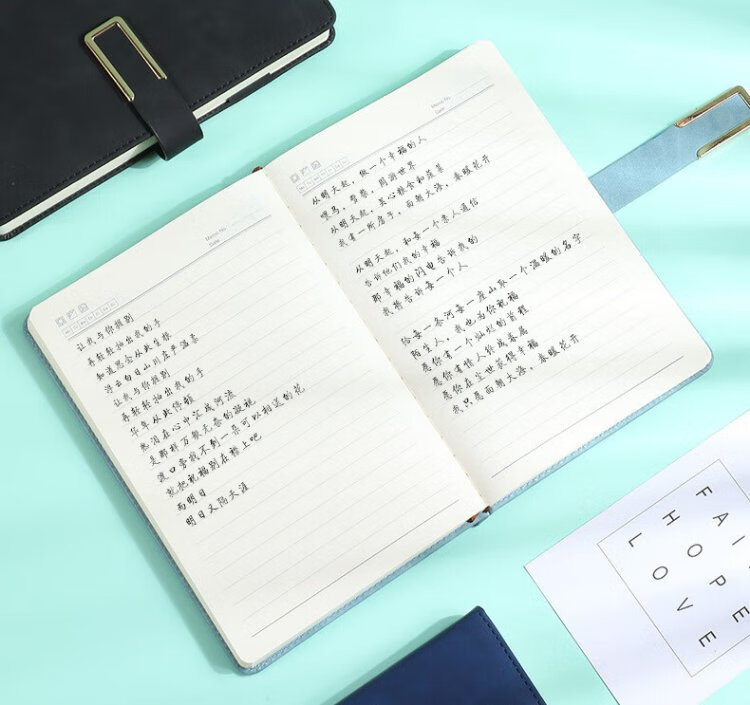 Memo No.
Date
让我与你握别
再轻轻抽出我的手
知道思念从此生根
浮云白日山川庄严温柔
让我与你握别
再轻轻抽出我的手
华年从此停顿
热泪在心中汇成河流
是那样万般无奈的凝视
渡口旁找不到一朵可以相送的花
就把祝福别在襟上吧
而明日
明日又隔天涯
Memo No.
Date
从明天起，做一个幸福的人
喂马，劈柴，周游世界
从明天起，关心粮食和蔬菜
我有一所房子，面朝大海，春暖花开
从明天起，和每一个亲人通信
告诉他们我的幸福
那幸福的闪电告诉我的
我将告诉每一个人
给每一条河每一座山取一个温暖的名字
陌生人，我也为你祝福
愿你有一个灿烂的前程
愿你有情人终成眷属
愿你在尘世获得幸福
我只愿面朝大海，春暖花开
FAI
HOPE
LOVE